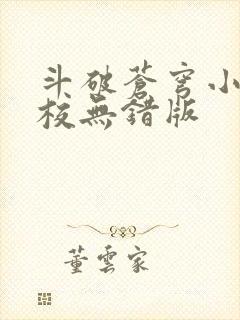 斗破蒼穹小
校無錯版
董雲家